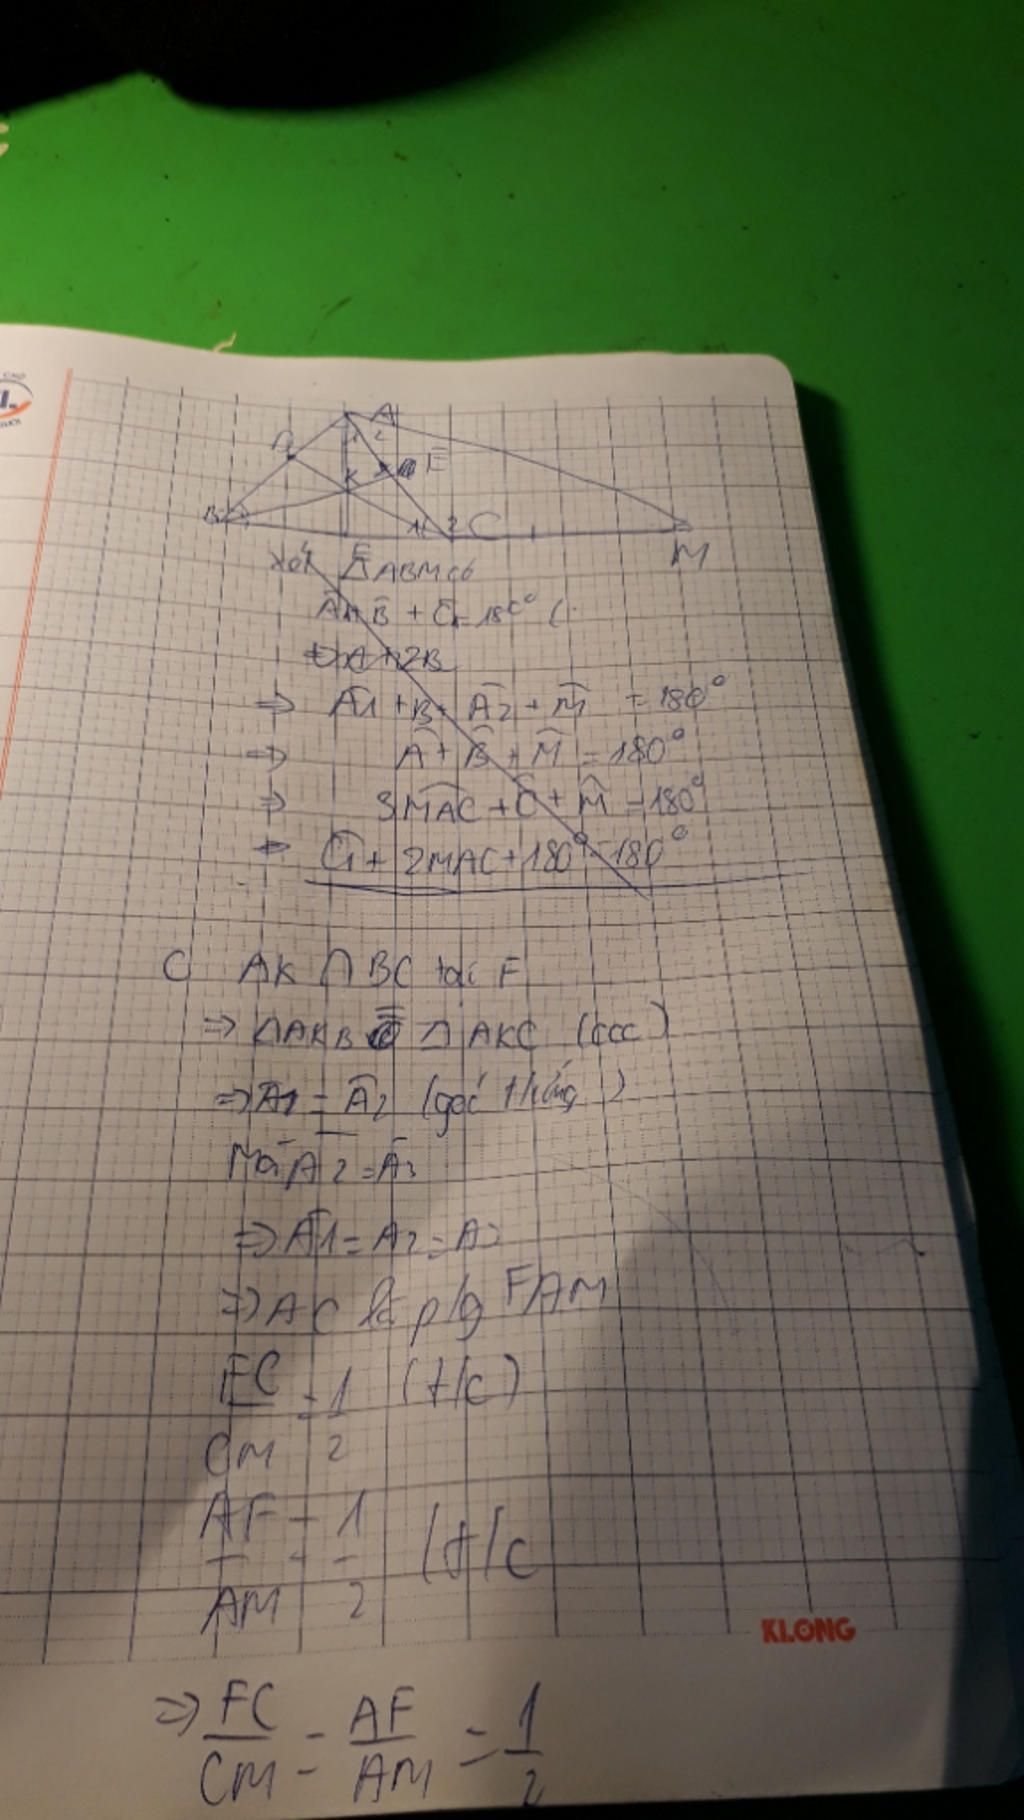 A
D
1 2
E
K
B
2 C
M
Xét △ABM có
Â + B̂ + Ĉ = 180° (
⇒ A + 2B
⇒ Â1 + B + Â2 + M̂ = 180°
⇒ Â + B̂ + M̂ = 180°
⇒ 3MAC + Ĉ + M̂ = 180°
⇒ Ĉ1 + 2MAC + 180° = 180°
C AK ∩ BC tại F
⇒ △AKB = △AKC (ccc)
⇒ Â1 = Â2 (góc tứng)
Mà A2 = A3
⇒ A1 = A2 = A3
⇒ AC là p/g FAM
FC/CM = 1/2 (t/c)
AF/AM = 1/2 (t/c
KLONG
⇒ FC/CM = AF/AM = 1/2